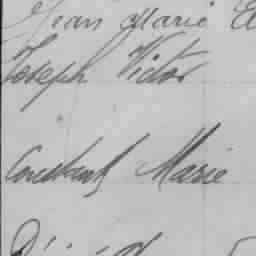 Jean Marie
Joseph Victor
Constant Marie